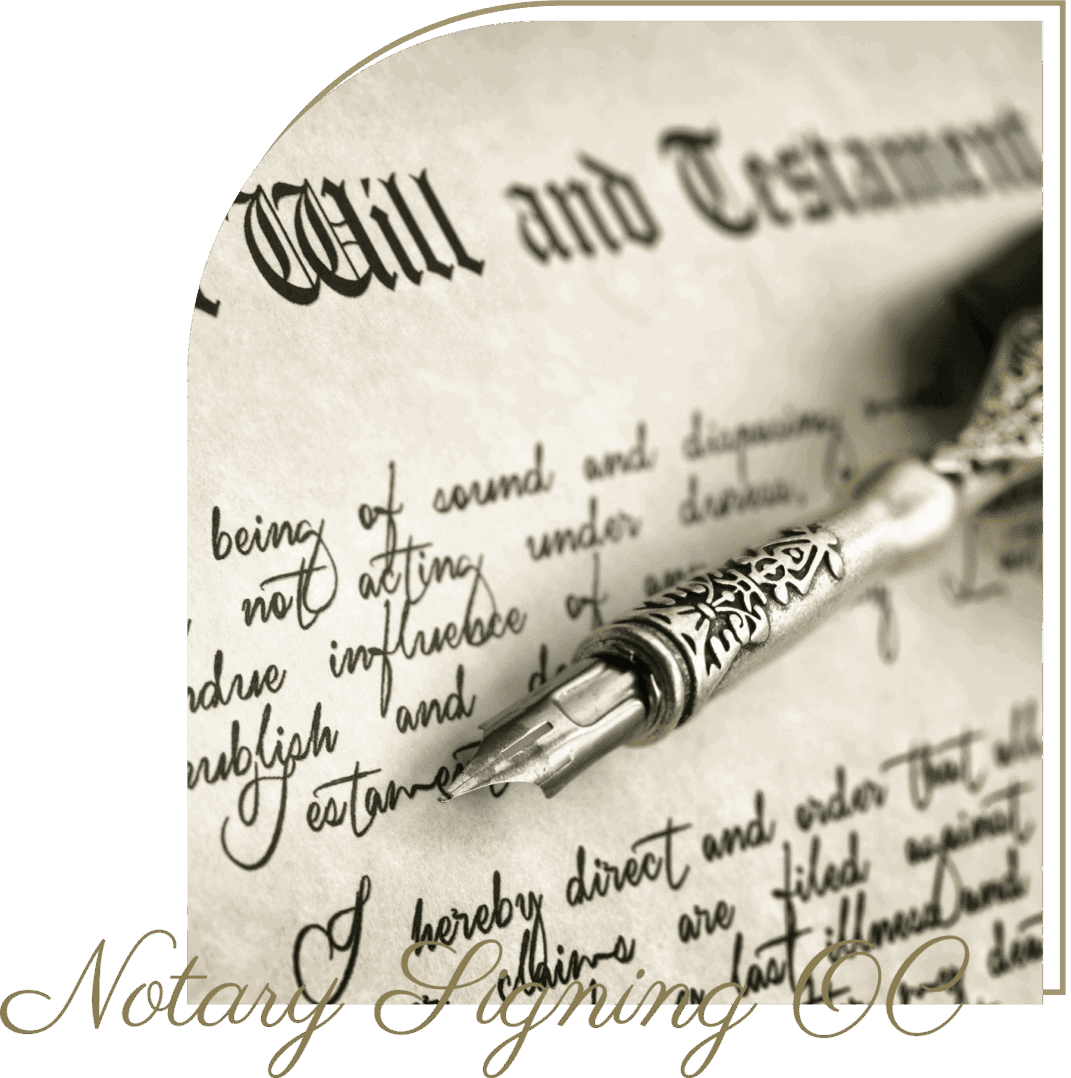 Will and Testament
being of sound and disposing
not acting under duress,
ndue influence of
publish and
estament
I hereby direct and order that all
claims are filed against
last illness and
my
Notary Signing OC